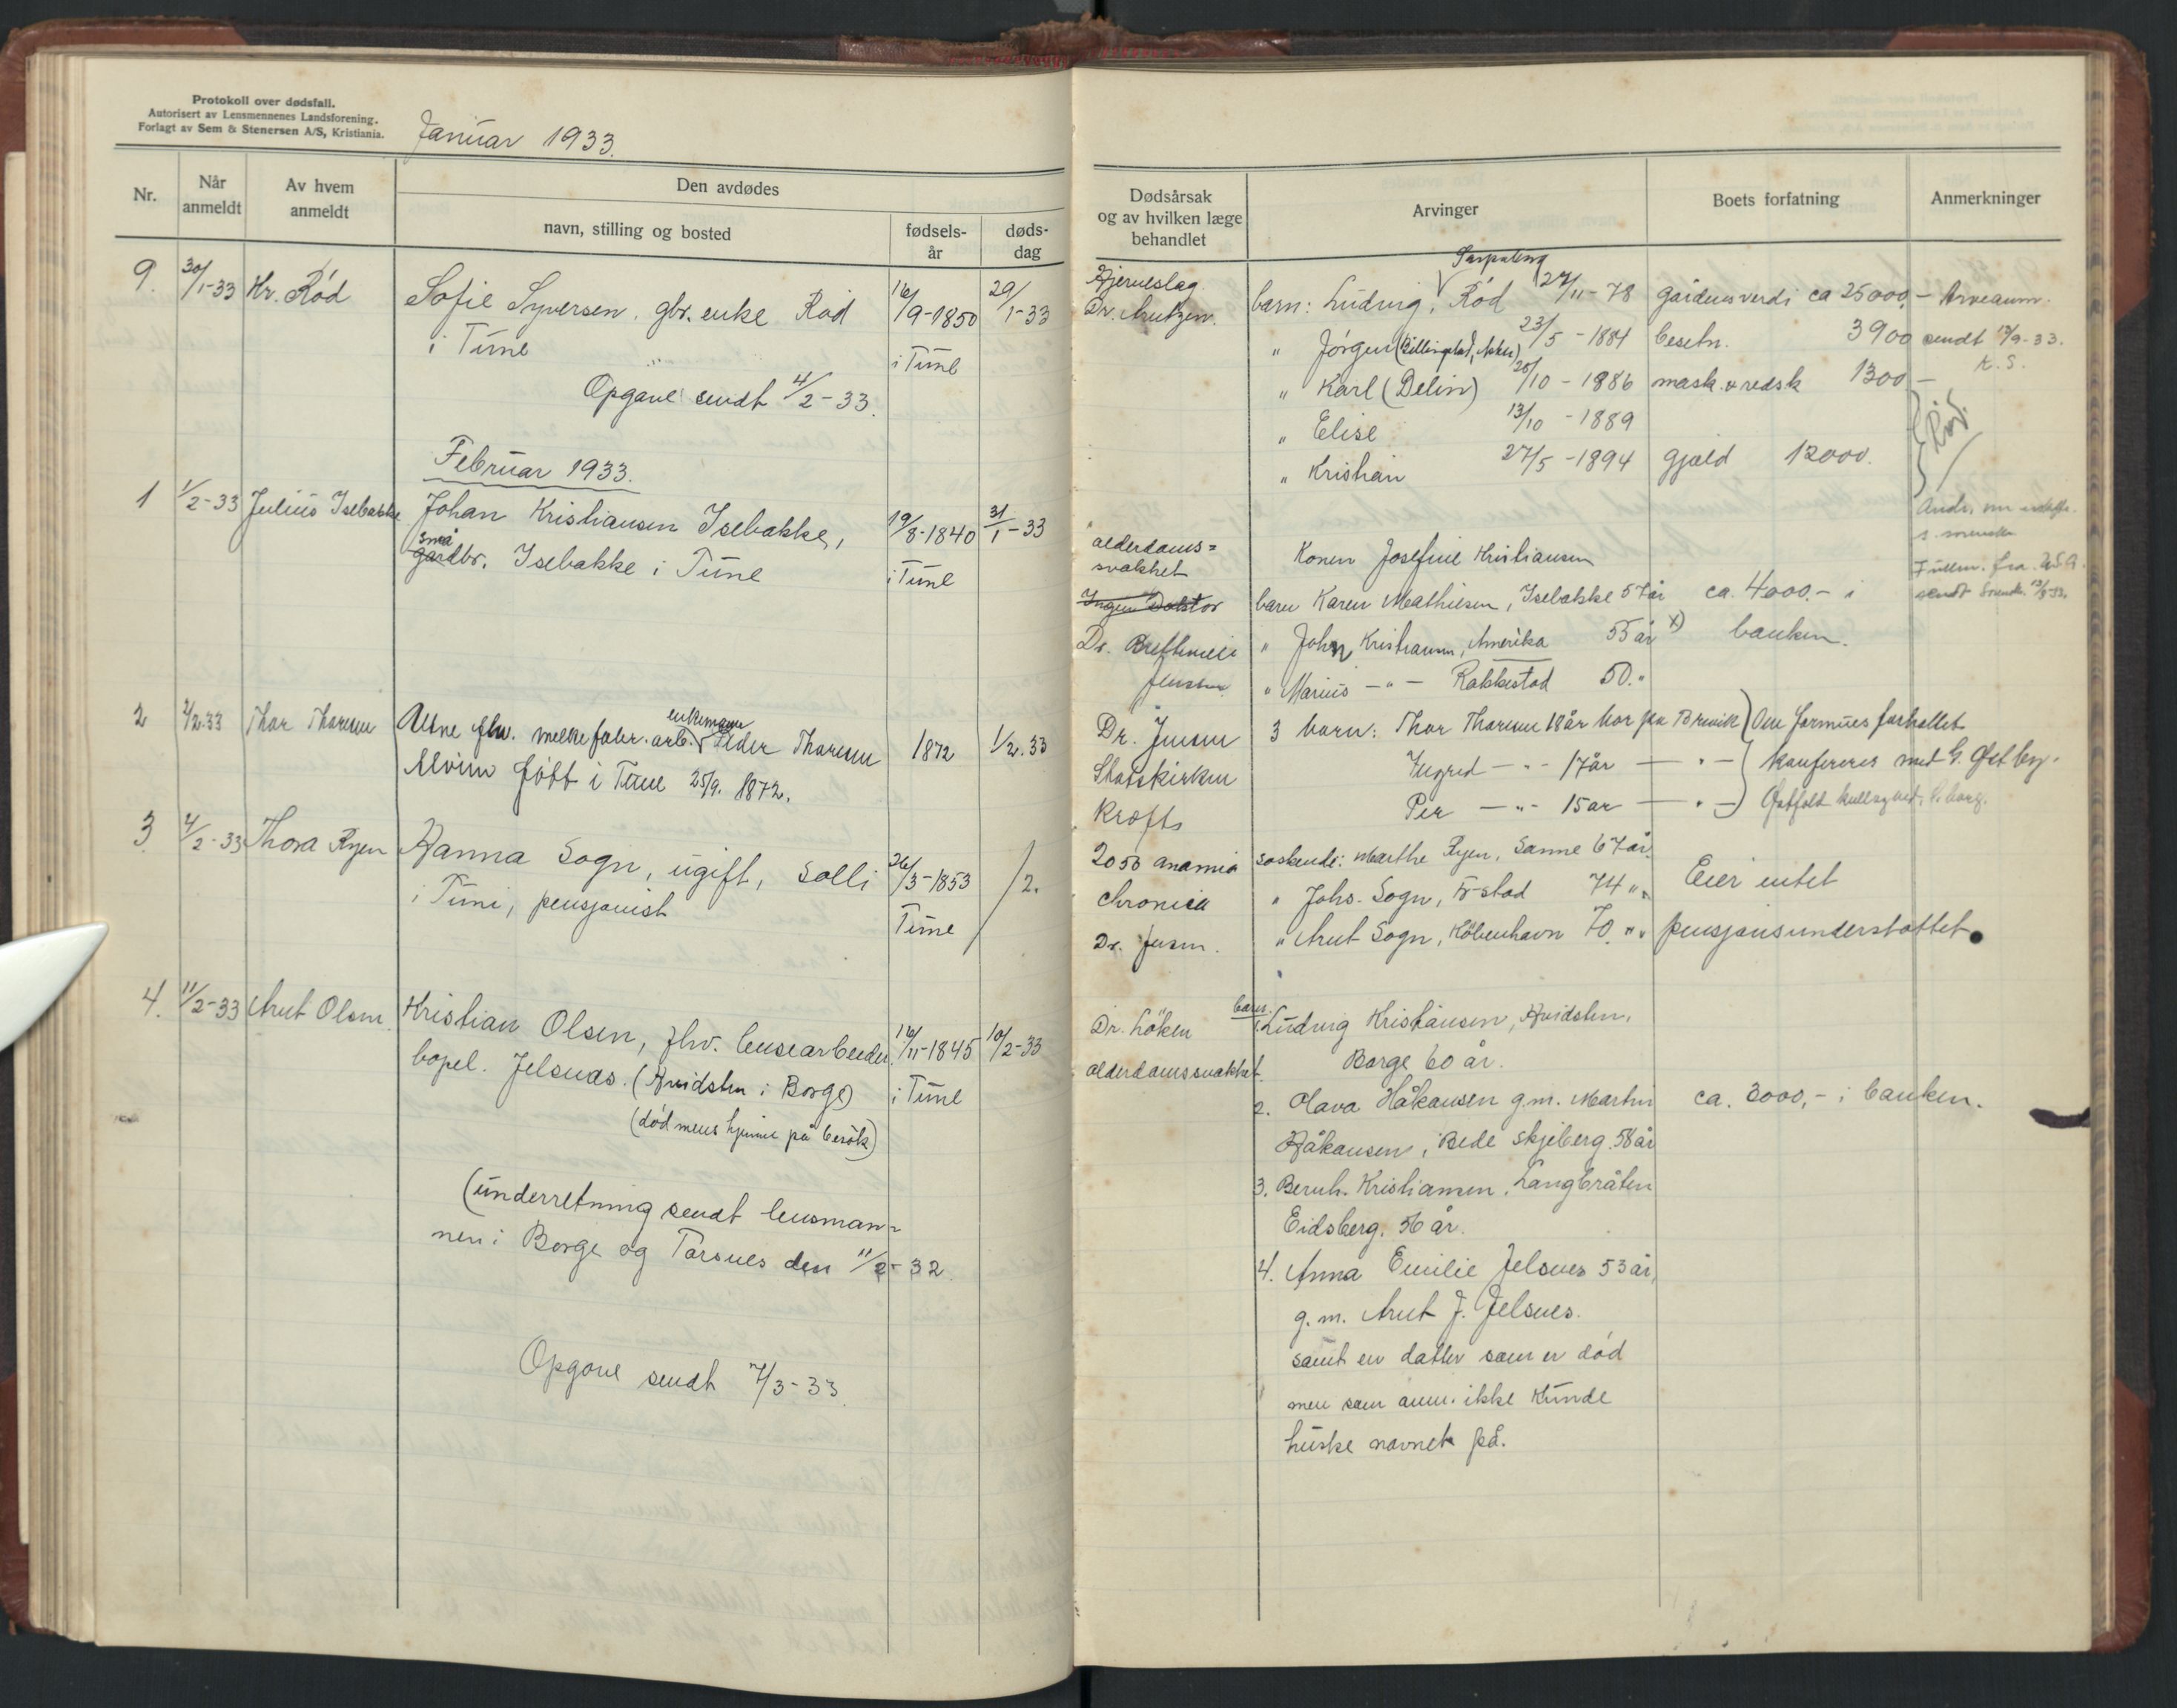 Protokoll over dødsfall.
Autorisert av Lensmennenes Landsforening.
Forlagt av Sem & Stenersen A/S, Kristiania.
Januar 1933.
Nr.
Når anmeldt
Av hvem anmeldt
Den avdødes
navn, stilling og bosted
fødsels-år
døds-dag
9. 30/1-33 Kr. Rød Sofie Syversen, gbr. enke Rød 16/9-1850 29/1-33
i Tune i Tune
Opgave sendt 4/2-33.
Februar 1933.
1 1/2-33 Julius Isebakke Johan Kristiansen Isebakke, 19/8-1840 31/1-33
små
gardbr. Isebakke i Tune i Tune
2 2/2 33 Thor Thoresen enkemann
Alene fhv. melkefabr. arb. Peder Thoresen 1872 1/2. 33
Alvim født i Tune 25/9. 1872.
3 4/2-33 Thora Ryen Hanna Sogn, ugift, Solli 26/3-1853 /2.
i Tune, pensjonist Tune
4. 11/2-33 Anut Olsen Kristian Olsen, fhv. brusearbeider 16/11-1845 10/2-33
bopel. Jelsnes. (Hvidsten i Borge) i Tune
(død mens hjemme på besøk)
(underretning sendt lensman=
nen i Borge og Torsnes den 11/2-32.
Opgave sendt 7/3-33.
Dødsårsak
og av hvilken læge
behandlet
Arvinger
Boets forfatning
Anmerkninger
Sarpsborg
Hjerneslag barn: Ludvig, Rød 27/11-78 gårdens verdi ca 25000,- Arveanm.
Dr. Arntzen. " Jørgen (Billingstad, Asker) 23/5-1884 besetn. 3900 sendt 13/9-33.
K.S.
" Karl (Delin) 28/10-1886 mask. & redsk 1300,-
" Elise 13/10-1889
" Kristian 27/5-1894 gjæld 12000.
alderdoms=
svakhet Konen Josefine Kristiansen
Ingen Doktor barn Karen Mathiesen, Isebakke 57 år ca. 4000.- i
Fullm. fra U.S.A.
Dr. " John Kristiansen, Amerika 55 år x) banken.
Jensen " Marius -"- Rakkestad 50."
Dr. Jensen 3 barn: Thor Thoresen 18 år bor på Brevik) Om formues forholdet
Ingred -"- 17 år -"- konfereres med G. Østby.
Per -"- 15 år -"-
Krøfts
anamia søskende: Marthe Ryen, Sanne 67 år.
chronica " Johs. Sogn, Fr-stad 74 " " Eier intet
Dr. Jensen. " Anut Sogn, København 70. " " pensjonsunderstøttet.
barn
Dr. Løken 1. Ludvig Kristiansen, Hvidsten,
Borge 60 år.
alderdomssvakhet.
2. Olava Håkansen g.m. Martin ca. 3000,- i banken.
Håkansen, Bede Skjeberg. 58 år
3. Bernh. Kristiansen, Langbråten
Eidsberg. 56 år.
4. Anna Emilie Jelsnes 53 år,
g.m. Anut J. Jelsnes.
samt en datter som er død
men som anm. ikke kunde
huske navnet på.